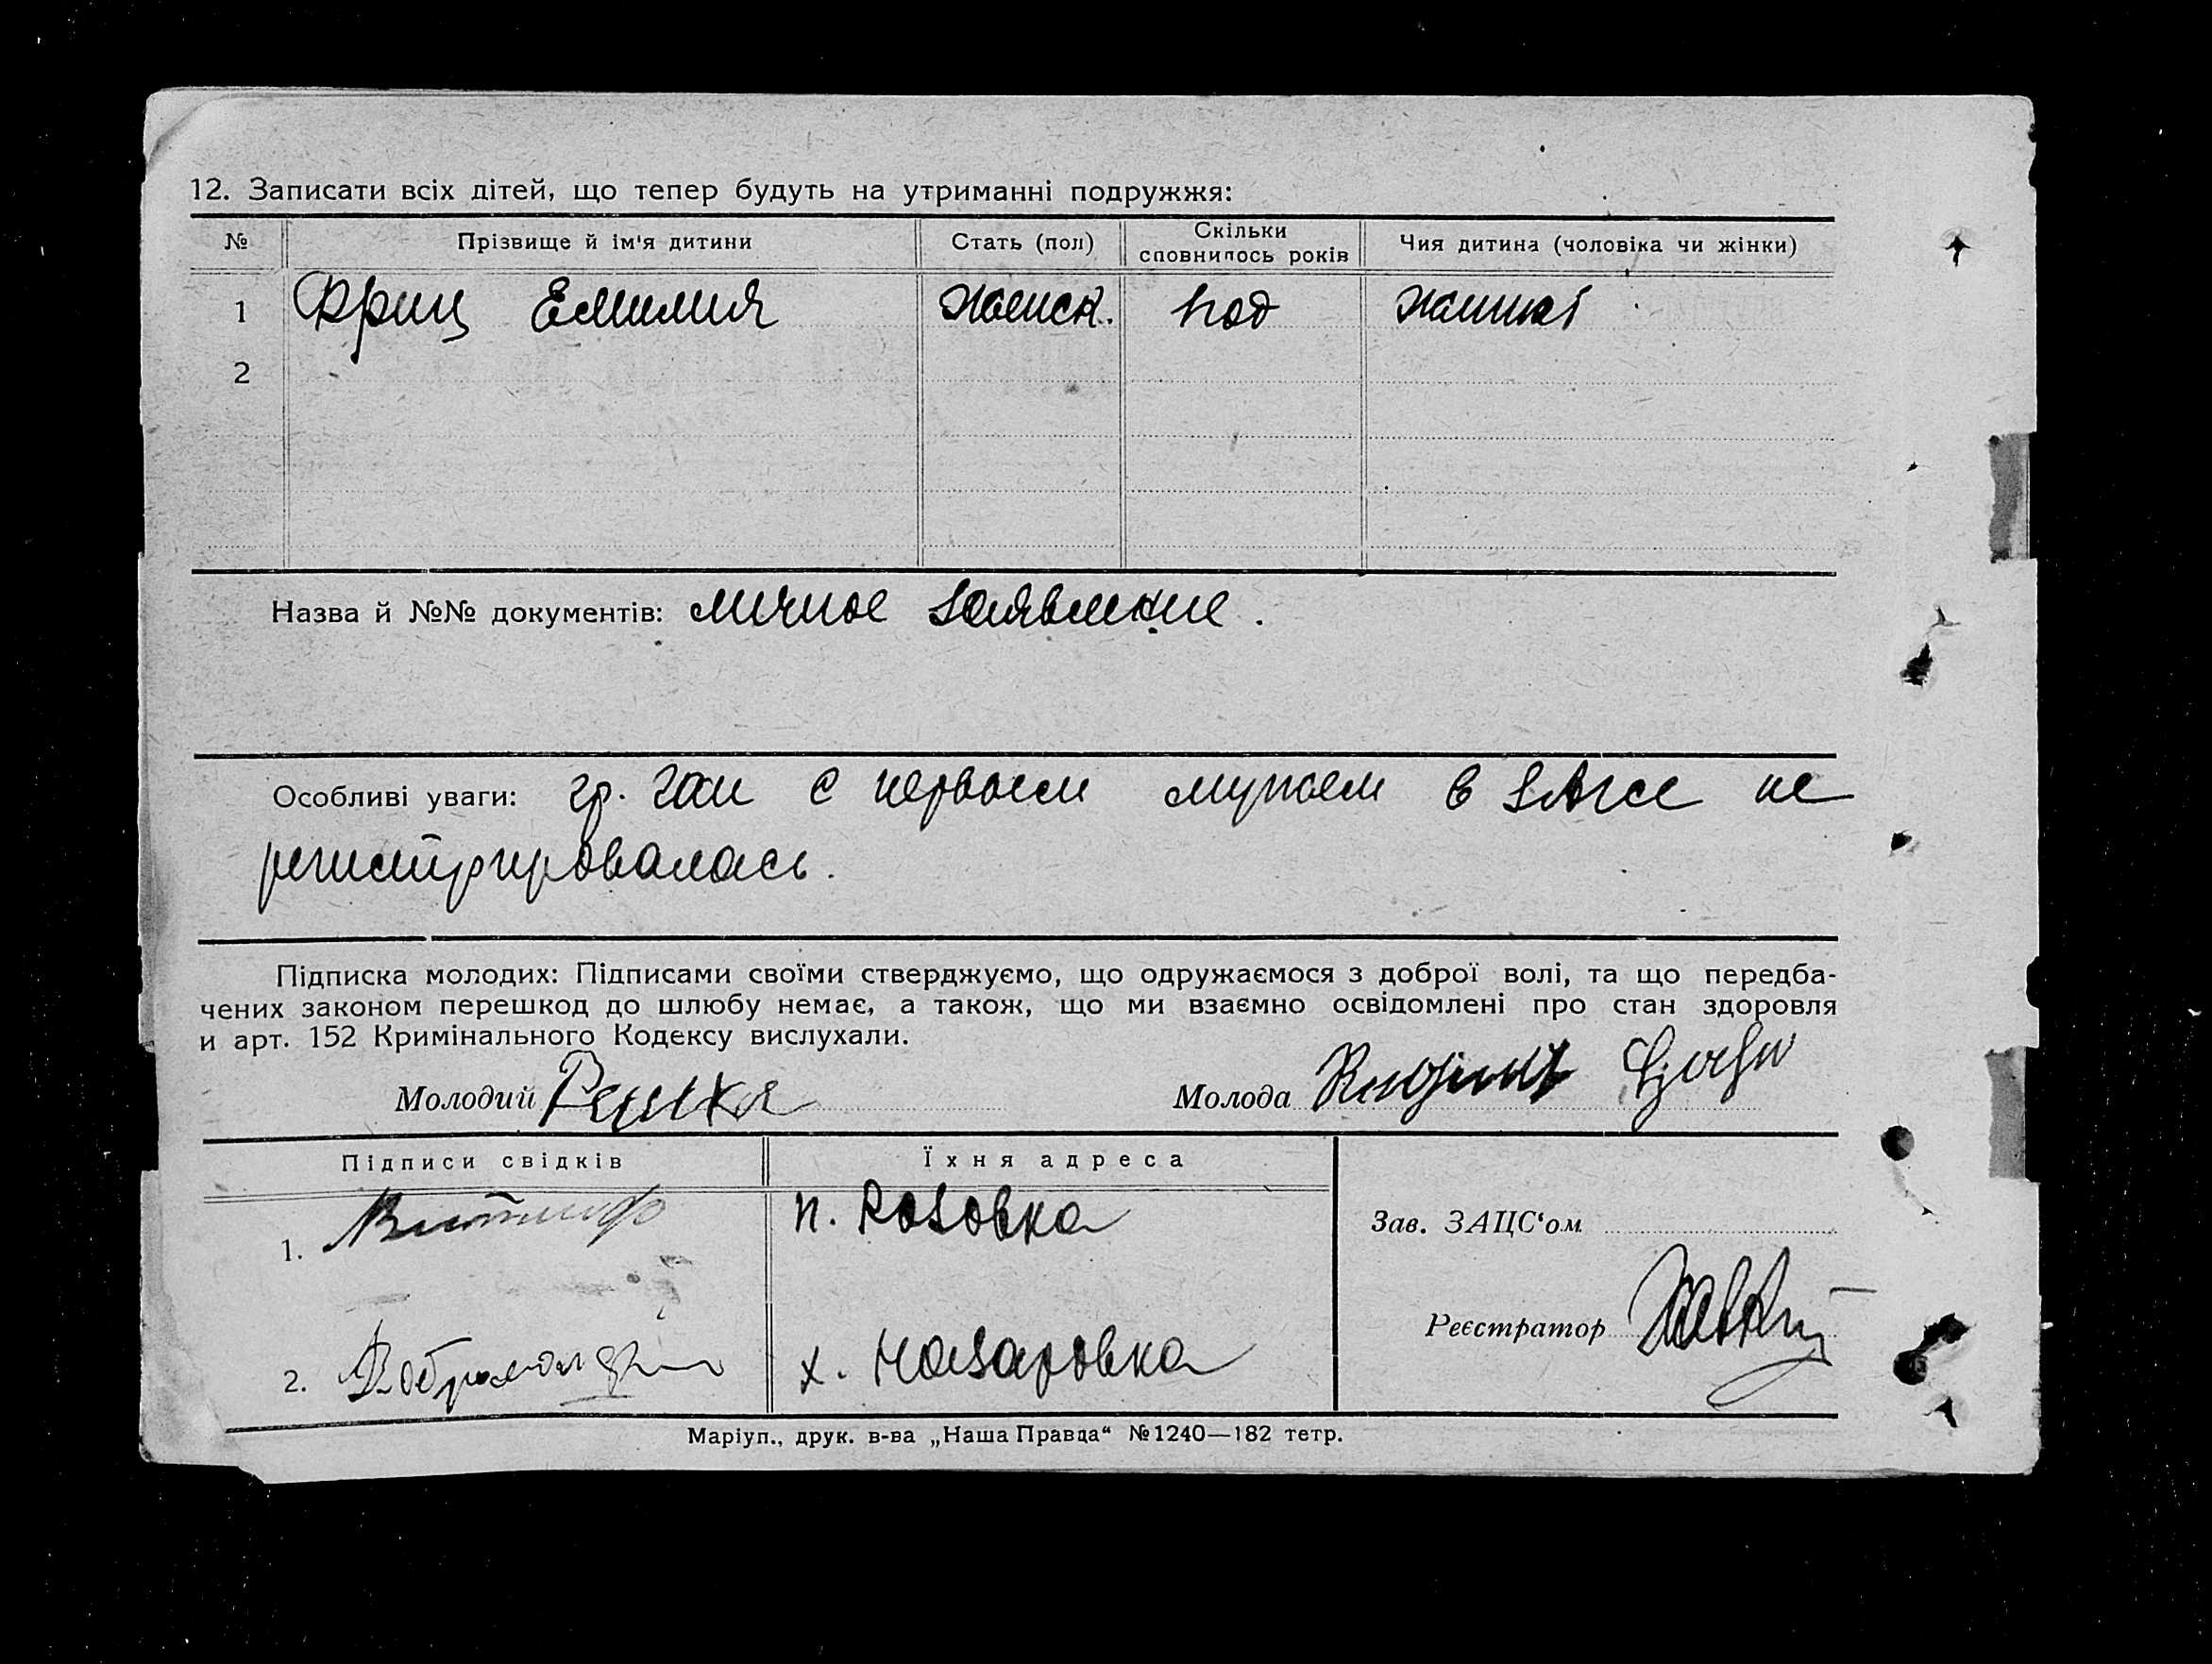 12. Записати всіх дітей, що тепер будуть на утриманні подружжя:
№ Прізвище й ім'я дитини Стать (пол) Скільки сповнилось років Чия дитина (чоловіка чи жінки)
1 Фриц Емилия женск. год
2
Назва й №№ документів: личное заявление.
Особливі уваги: гр. Ган с первым мужем в ЗАГСе не
регистрировалась.
Підписка молодих: Підписами своїми стверджуємо, що одружаємося з доброї волі, та що передба-
чених законом перешкод до шлюбу немає, а також, що ми взаємно освідомлені про стан здоровля
и арт. 152 Кримінального Кодексу вислухали.
Молодий Молода
Підписи свідків Їхня адреса
1. п. Розовка
Зав. ЗАЦС'ом
Реєстратор
2. х. Назаровка
Маріуп., друк. в-ва „Наша Правда“ №1240—182 тетр.